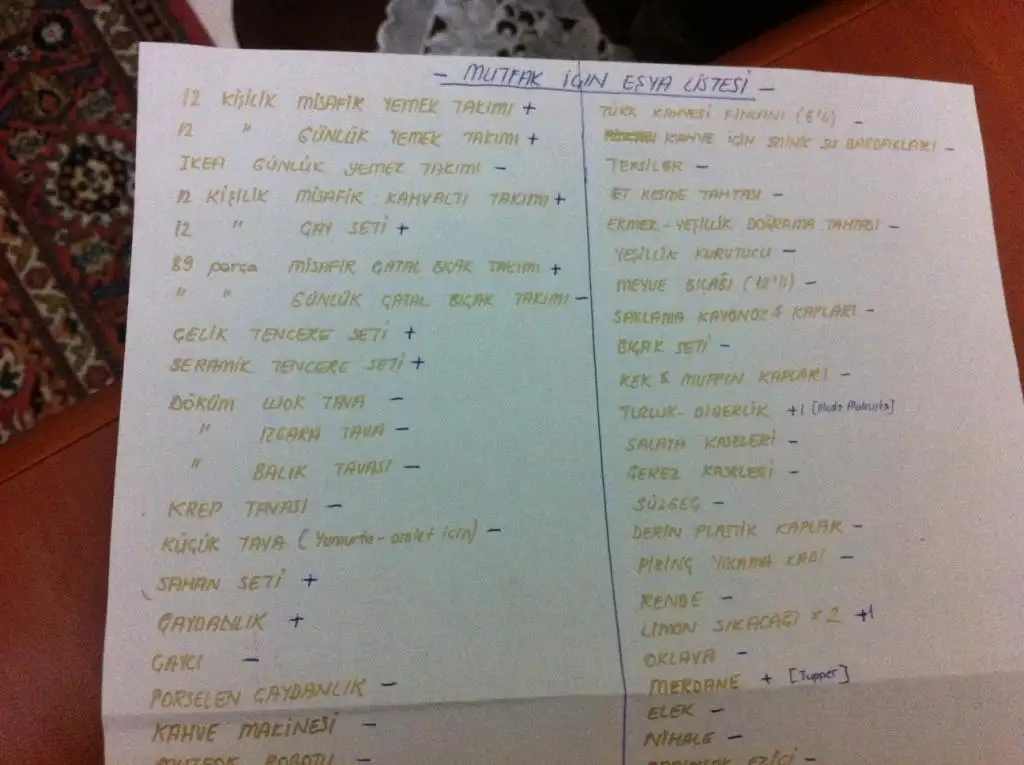 - MUTFAK İÇİN EŞYA LİSTESİ -
12 KİŞİLİK MİSAFİR YEMEK TAKIMI +
12 " GÜNLÜK YEMEK TAKIMI +
IKEA GÜNLÜK YEMEK TAKIMI -
12 KİŞİLİK MİSAFİR KAHVALTI TAKIMI +
12 " ÇAY SETİ +
89 parça MİSAFİR ÇATAL BIÇAK TAKIMI +
" " GÜNLÜK ÇATAL BIÇAK TAKIMI -
ÇELİK TENCERE SETİ +
SERAMİK TENCERE SETİ +
DÖKÜM WOK TAVA -
" IZGARA TAVA -
" BALIK TAVASI -
KREP TAVASI -
KÜÇÜK TAVA (Yumurta-omlet için) -
SAHAN SETİ +
ÇAYDANLIK +
ÇAYCI -
PORSELEN ÇAYDANLIK -
KAHVE MAKİNESİ -
MUTFAK ROBOTU -
TÜRK KAHVESİ FİNCANI (6'lı) -
KAHVE İÇİN MİNİK SU BARDAKLARI -
TEPSİLER -
ET KESME TAHTASI -
EKMEK-YEŞİLLİK DOĞRAMA TAHTASI -
YEŞİLLİK KURUTUCU -
MEYVE BIÇAĞI (12'li) -
SAKLAMA KAVONOZ & KAPLARI -
BIÇAK SETİ -
KEK & MUFFIN KAPLARI -
TUZLUK-BİBERLİK +1
SALATA KASELERİ -
ÇEREZ KASELERİ -
SÜZGEÇ -
DERİN PLASTİK KAPLAR -
PİRİNÇ YIKAMA KABI -
RENDE -
LİMON SIKACAĞI x2 +1
OKLAVA -
MERDANE + [Tupper]
ELEK -
NİHALE -
EZİCİ -